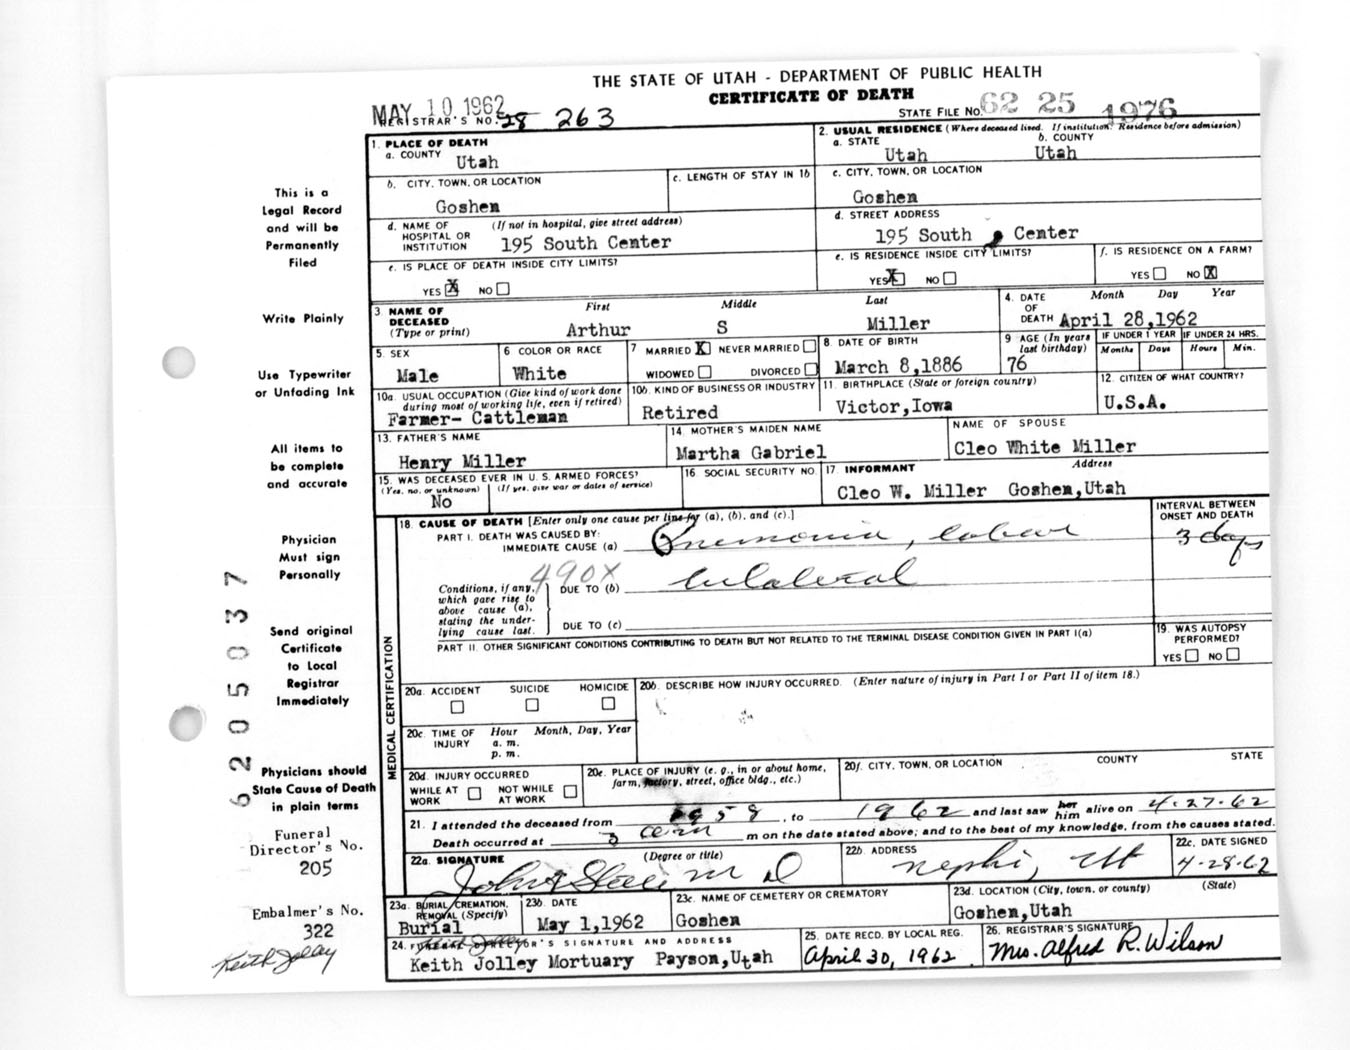 THE STATE OF UTAH - DEPARTMENT OF PUBLIC HEALTH
CERTIFICATE OF DEATH
MAY 10 1962
REGISTRAR'S NO. 28 263
STATE FILE NO. 62 25 1976
This is a
Legal Record
and will be
Permanently
Filed
Write Plainly
Use Typewriter
or Unfading Ink
All items to
be complete
and accurate
Physician
Must sign
Personally
Send original
Certificate
to Local
Registrar
Immediately
Physicians should
State Cause of Death
in plain terms
Funeral
Director's No.
205
Embalmer's No.
322
Keith Jolley
6205037
1. PLACE OF DEATH
a. COUNTY Utah
2. USUAL RESIDENCE (Where deceased lived. If institution: Residence before admission)
a. STATE Utah b. COUNTY Utah
b. CITY, TOWN, OR LOCATION Goshen
c. LENGTH OF STAY IN 1b
c. CITY, TOWN, OR LOCATION
Goshen
d. NAME OF HOSPITAL OR INSTITUTION (If not in hospital, give street address)
195 South Center
d. STREET ADDRESS
195 South Center
e. IS PLACE OF DEATH INSIDE CITY LIMITS?
YES X NO
e. IS RESIDENCE INSIDE CITY LIMITS?
YES X NO
f. IS RESIDENCE ON A FARM?
YES NO X
3. NAME OF DECEASED (Type or print)
First Middle Last
Arthur S Miller
4. DATE OF DEATH Month Day Year
April 28,1962
5. SEX
Male
6 COLOR OR RACE
White
7 MARRIED X NEVER MARRIED
WIDOWED DIVORCED
8. DATE OF BIRTH
March 8,1886
9 AGE (In years last birthday)
76
IF UNDER 1 YEAR IF UNDER 24 HRS.
Months Days Hours Min.
10a. USUAL OCCUPATION (Give kind of work done during most of working life, even if retired)
Farmer- Cattleman
10b. KIND OF BUSINESS OR INDUSTRY
Retired
11. BIRTHPLACE (State or foreign country)
Victor,Iowa
12. CITIZEN OF WHAT COUNTRY?
U.S.A.
13. FATHER'S NAME
Henry Miller
14. MOTHER'S MAIDEN NAME
Martha Gabriel
NAME OF SPOUSE
Cleo White Miller
15. WAS DECEASED EVER IN U. S. ARMED FORCES?
(Yes, no, or unknown) (If yes, give war or dates of service)
No
16. SOCIAL SECURITY NO.
17. INFORMANT Address
Cleo W. Miller Goshen,Utah
MEDICAL CERTIFICATION
18. CAUSE OF DEATH [Enter only one cause per line for (a), (b), and (c).]
INTERVAL BETWEEN ONSET AND DEATH
PART I. DEATH WAS CAUSED BY:
IMMEDIATE CAUSE (a) Pnemonia, lobar 3 days
490X
Conditions, if any, which gave rise to above cause (a), stating the underlying cause last.
DUE TO (b) bilateral
DUE TO (c)
PART II. OTHER SIGNIFICANT CONDITIONS CONTRIBUTING TO DEATH BUT NOT RELATED TO THE TERMINAL DISEASE CONDITION GIVEN IN PART I(a)
19. WAS AUTOPSY PERFORMED?
YES NO
20a. ACCIDENT SUICIDE HOMICIDE
20b. DESCRIBE HOW INJURY OCCURRED. (Enter nature of injury in Part I or Part II of item 18.)
20c. TIME OF INJURY Hour Month, Day, Year
a. m.
p. m.
20d. INJURY OCCURRED
WHILE AT WORK NOT WHILE AT WORK
20e. PLACE OF INJURY (e. g., in or about home, farm, factory, street, office bldg., etc.)
20f. CITY, TOWN, OR LOCATION COUNTY STATE
21. I attended the deceased from 1958, to 1962 and last saw her him alive on 4-27-62
Death occurred at 3 am m on the date stated above; and to the best of my knowledge, from the causes stated.
22a. SIGNATURE (Degree or title)
John M D
22b. ADDRESS
Nephi, Ut
22c. DATE SIGNED
4-28-62
23a. BURIAL, CREMATION, REMOVAL (Specify)
Burial
23b. DATE
May 1,1962
23c. NAME OF CEMETERY OR CREMATORY
Goshen
23d. LOCATION (City, town, or county) (State)
Goshen,Utah
24. FUNERAL DIRECTOR'S SIGNATURE AND ADDRESS
Keith Jolley
Keith Jolley Mortuary Payson,Utah
25. DATE RECD. BY LOCAL REG.
April 30, 1962
26. REGISTRAR'S SIGNATURE
Mrs. Alfred R. Wilson